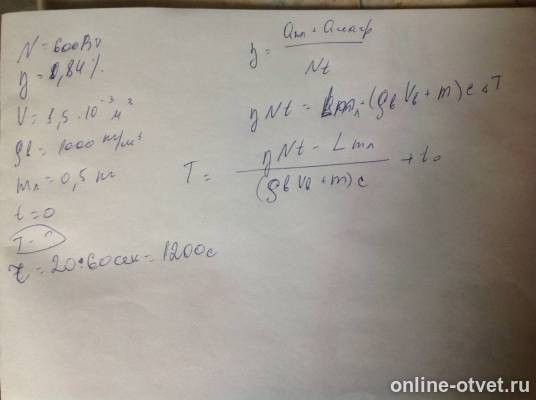 N = 600 Вт
η = 0,84 %
V = 1,5 · 10⁻³ м³
ρв = 1000 кг/м³
mл = 0,5 кг
t = 0
T - ?
τ = 20·60сек = 1200с
η = (Aпл + Aнагр) / Nt
ηNt = Lmл + (ρв Vв + m) c ΔT
T = (ηNt - Lmл) / ((ρв Vв + m) c) + t₀
online-otvet.ru